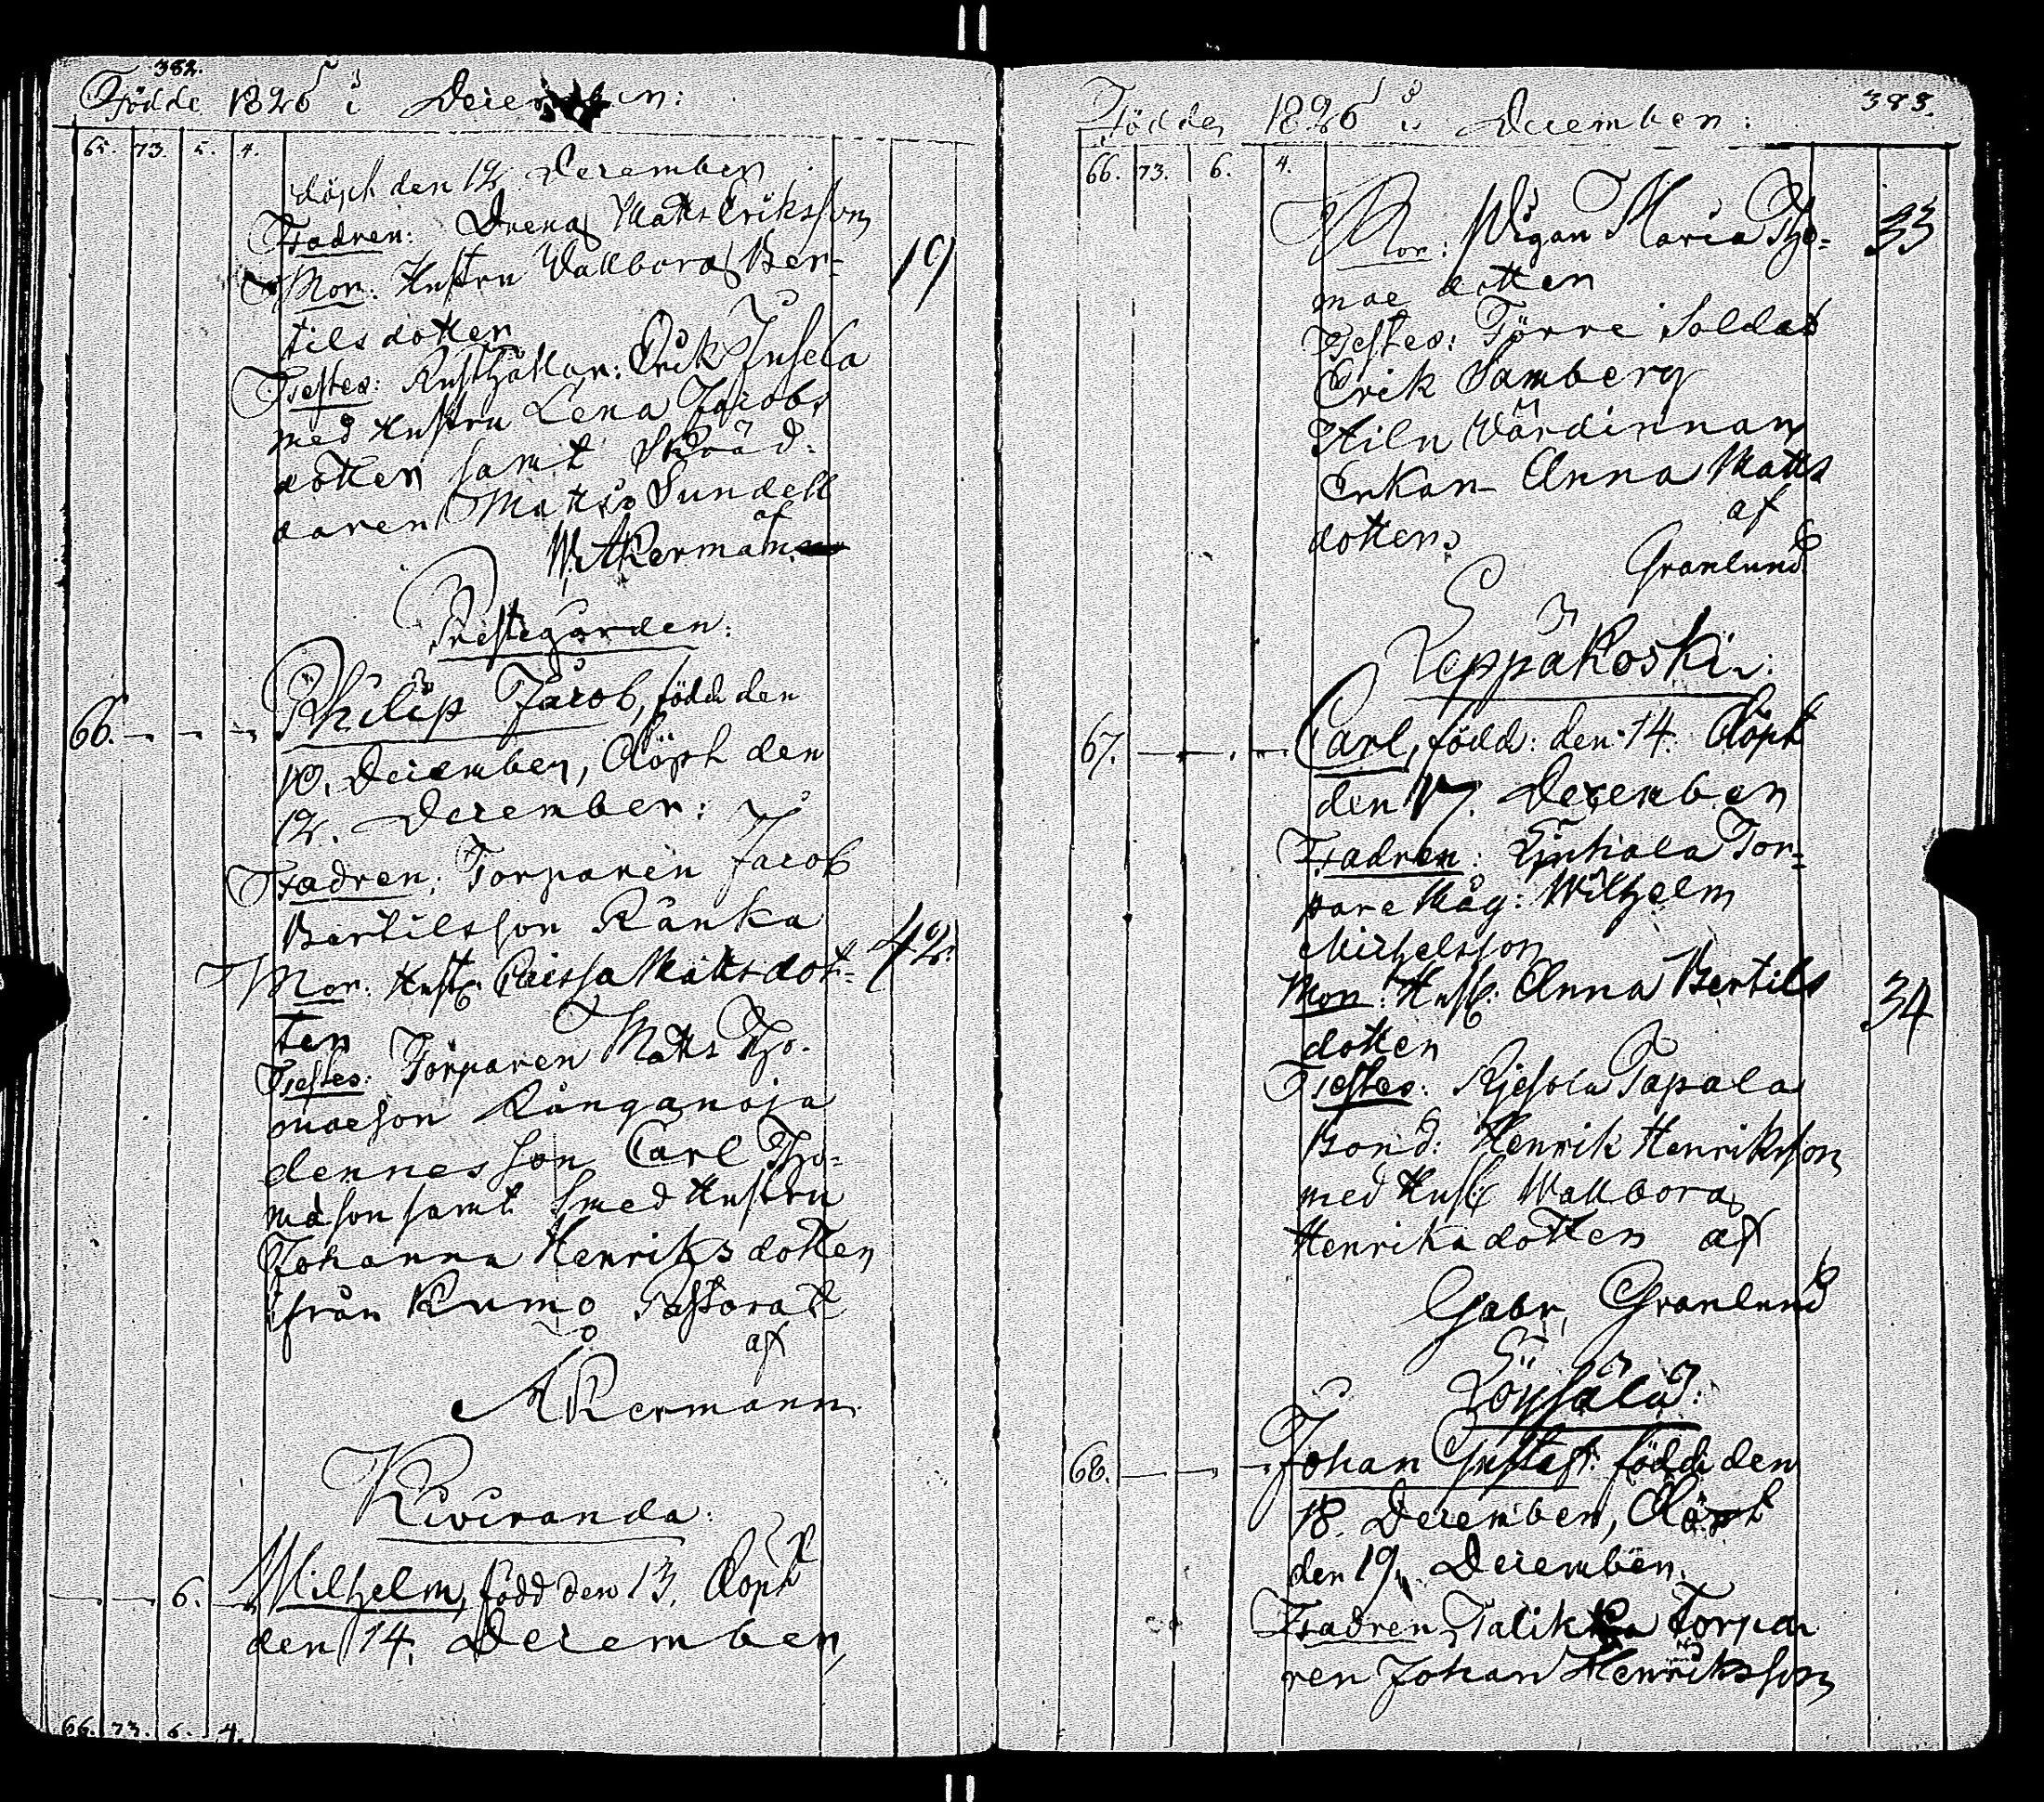 382.
Födde 1826 i December:
65. 73. 5. 4.
döpt den 12 December
Fadren: Dreng Matts Eriksson
Mor: Hustru Wallborg Ber= 19
tilsdotter
Testes: Rusthållar: Erik Jusela
med Hustru Lena Jacobs
dotter samt Skräd=
daren Matts Sundell
af
W. Åkerman
Prestegården:
66. Philip Jacob, född den
10. December, döpt den
12. December:
Fadren: Torparen Jacob
Bertilsson Ränka
Mor: Hust: Caissa Mattsdot= 42.
ter
Testes: Torparen Matts Tho-
maeson Kånganoja
dennes son Carl Tho=
mason samt Smed Hustru
Johanna Henriksdotter
från Kumo Pastorat
af
Åkermann
Kiviranda:
6. Wilhelm, född den 13. döpt
den 14. December,
66. 73. 6. 4.
383.
Födde 1826 i December:
66. 73. 6. 4.
Mor: Pigan Maria Tho= 33
mae dotter
Testes: Förre Soldat
Erik Samberg
Hiln Värdinnan
Enkan Anna Matts
dotter af
Granlund
Leppäkoski:
67. Carl, född: den 14. döpt
den 17. December
Fadren: Tor=
pare Måg: Wilhelm
Michelsson
Mor: Hust: Anna Bertils 34
dotter
Testes: Kjesola Papala
Bond: Henrik Henriksson
med Hust: Wallborg
Henriksdotter af
Gabr. Granlund
Löysälä:
68. Johan Gustaf: född den
18. December, döpt
den 19. December.
Fadren Talikka Torpa
ren Johan Henriksson